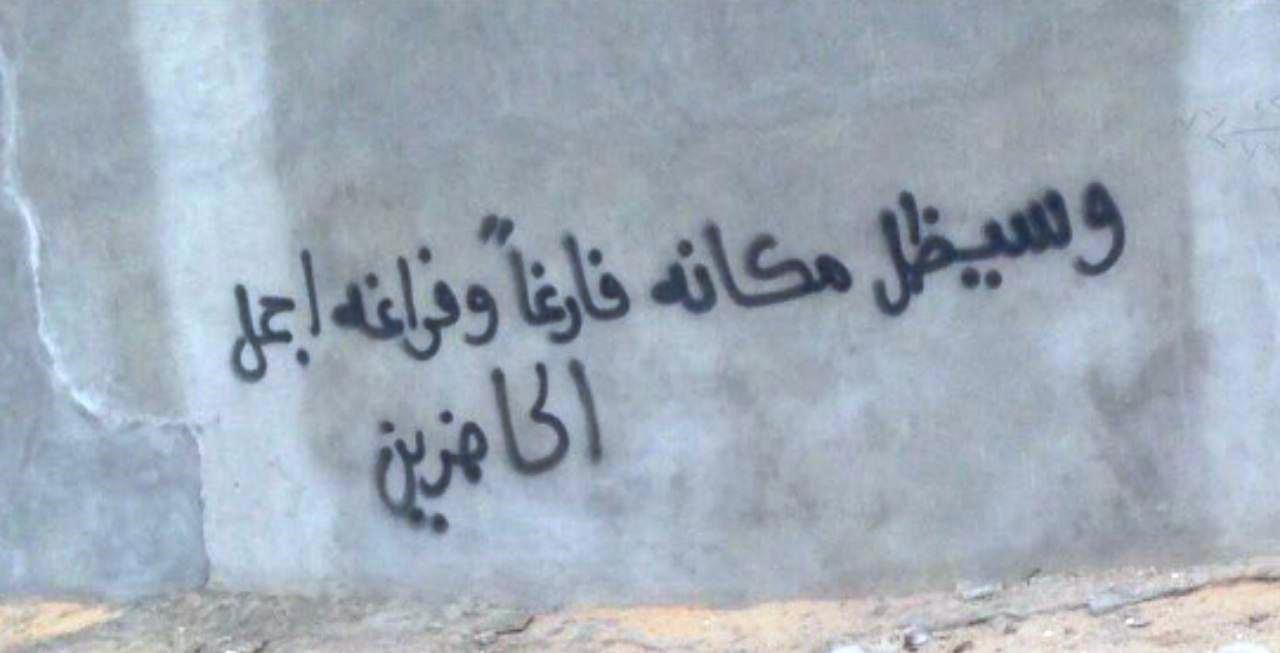 وسيظل مكانه فارغاً وفراغه اجمل
الحاضرين